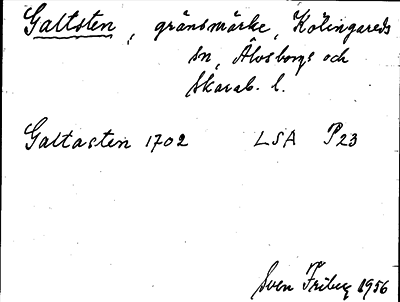 Galtsten, gränsmärke, Kölingareds
sn, Älvsborgs och
Skarab. l.
Galtasten 1702 LSA P23
Sven Friberg 1956